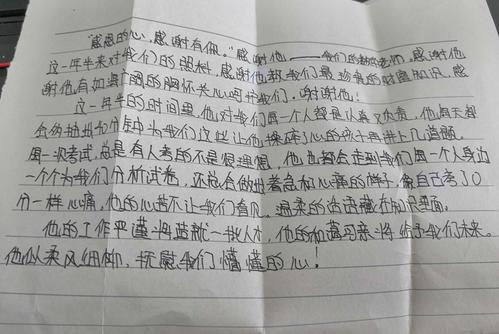 "感恩的心,感谢有你。"感谢他——我们的教师,感谢他
这一年半来对我们的照料,感谢他教我们最珍贵的财富知识,感
谢他有如海广阔的胸怀关心呵护我们,谢谢他!
这一年半的时间里,他对我们每一个人都是认真又负责,他每天都
会伤抽出为我们这些让他操碎了心的孩子再讲上几道题。
每一次考试,总是有人考的不是很理想,他也都会走到我们每一个人身边
一个个为我们分析试卷,还总会做出着急和心痛的样子,像自己考了0
分一样心痛,他的心从不让我们看见,温柔的话语藏在知识里面。
他的工作严谨将造就一批人才,他的和蔼可亲将给予我们未来。
他似柔风细雨,抚慰我们懵懂的心!